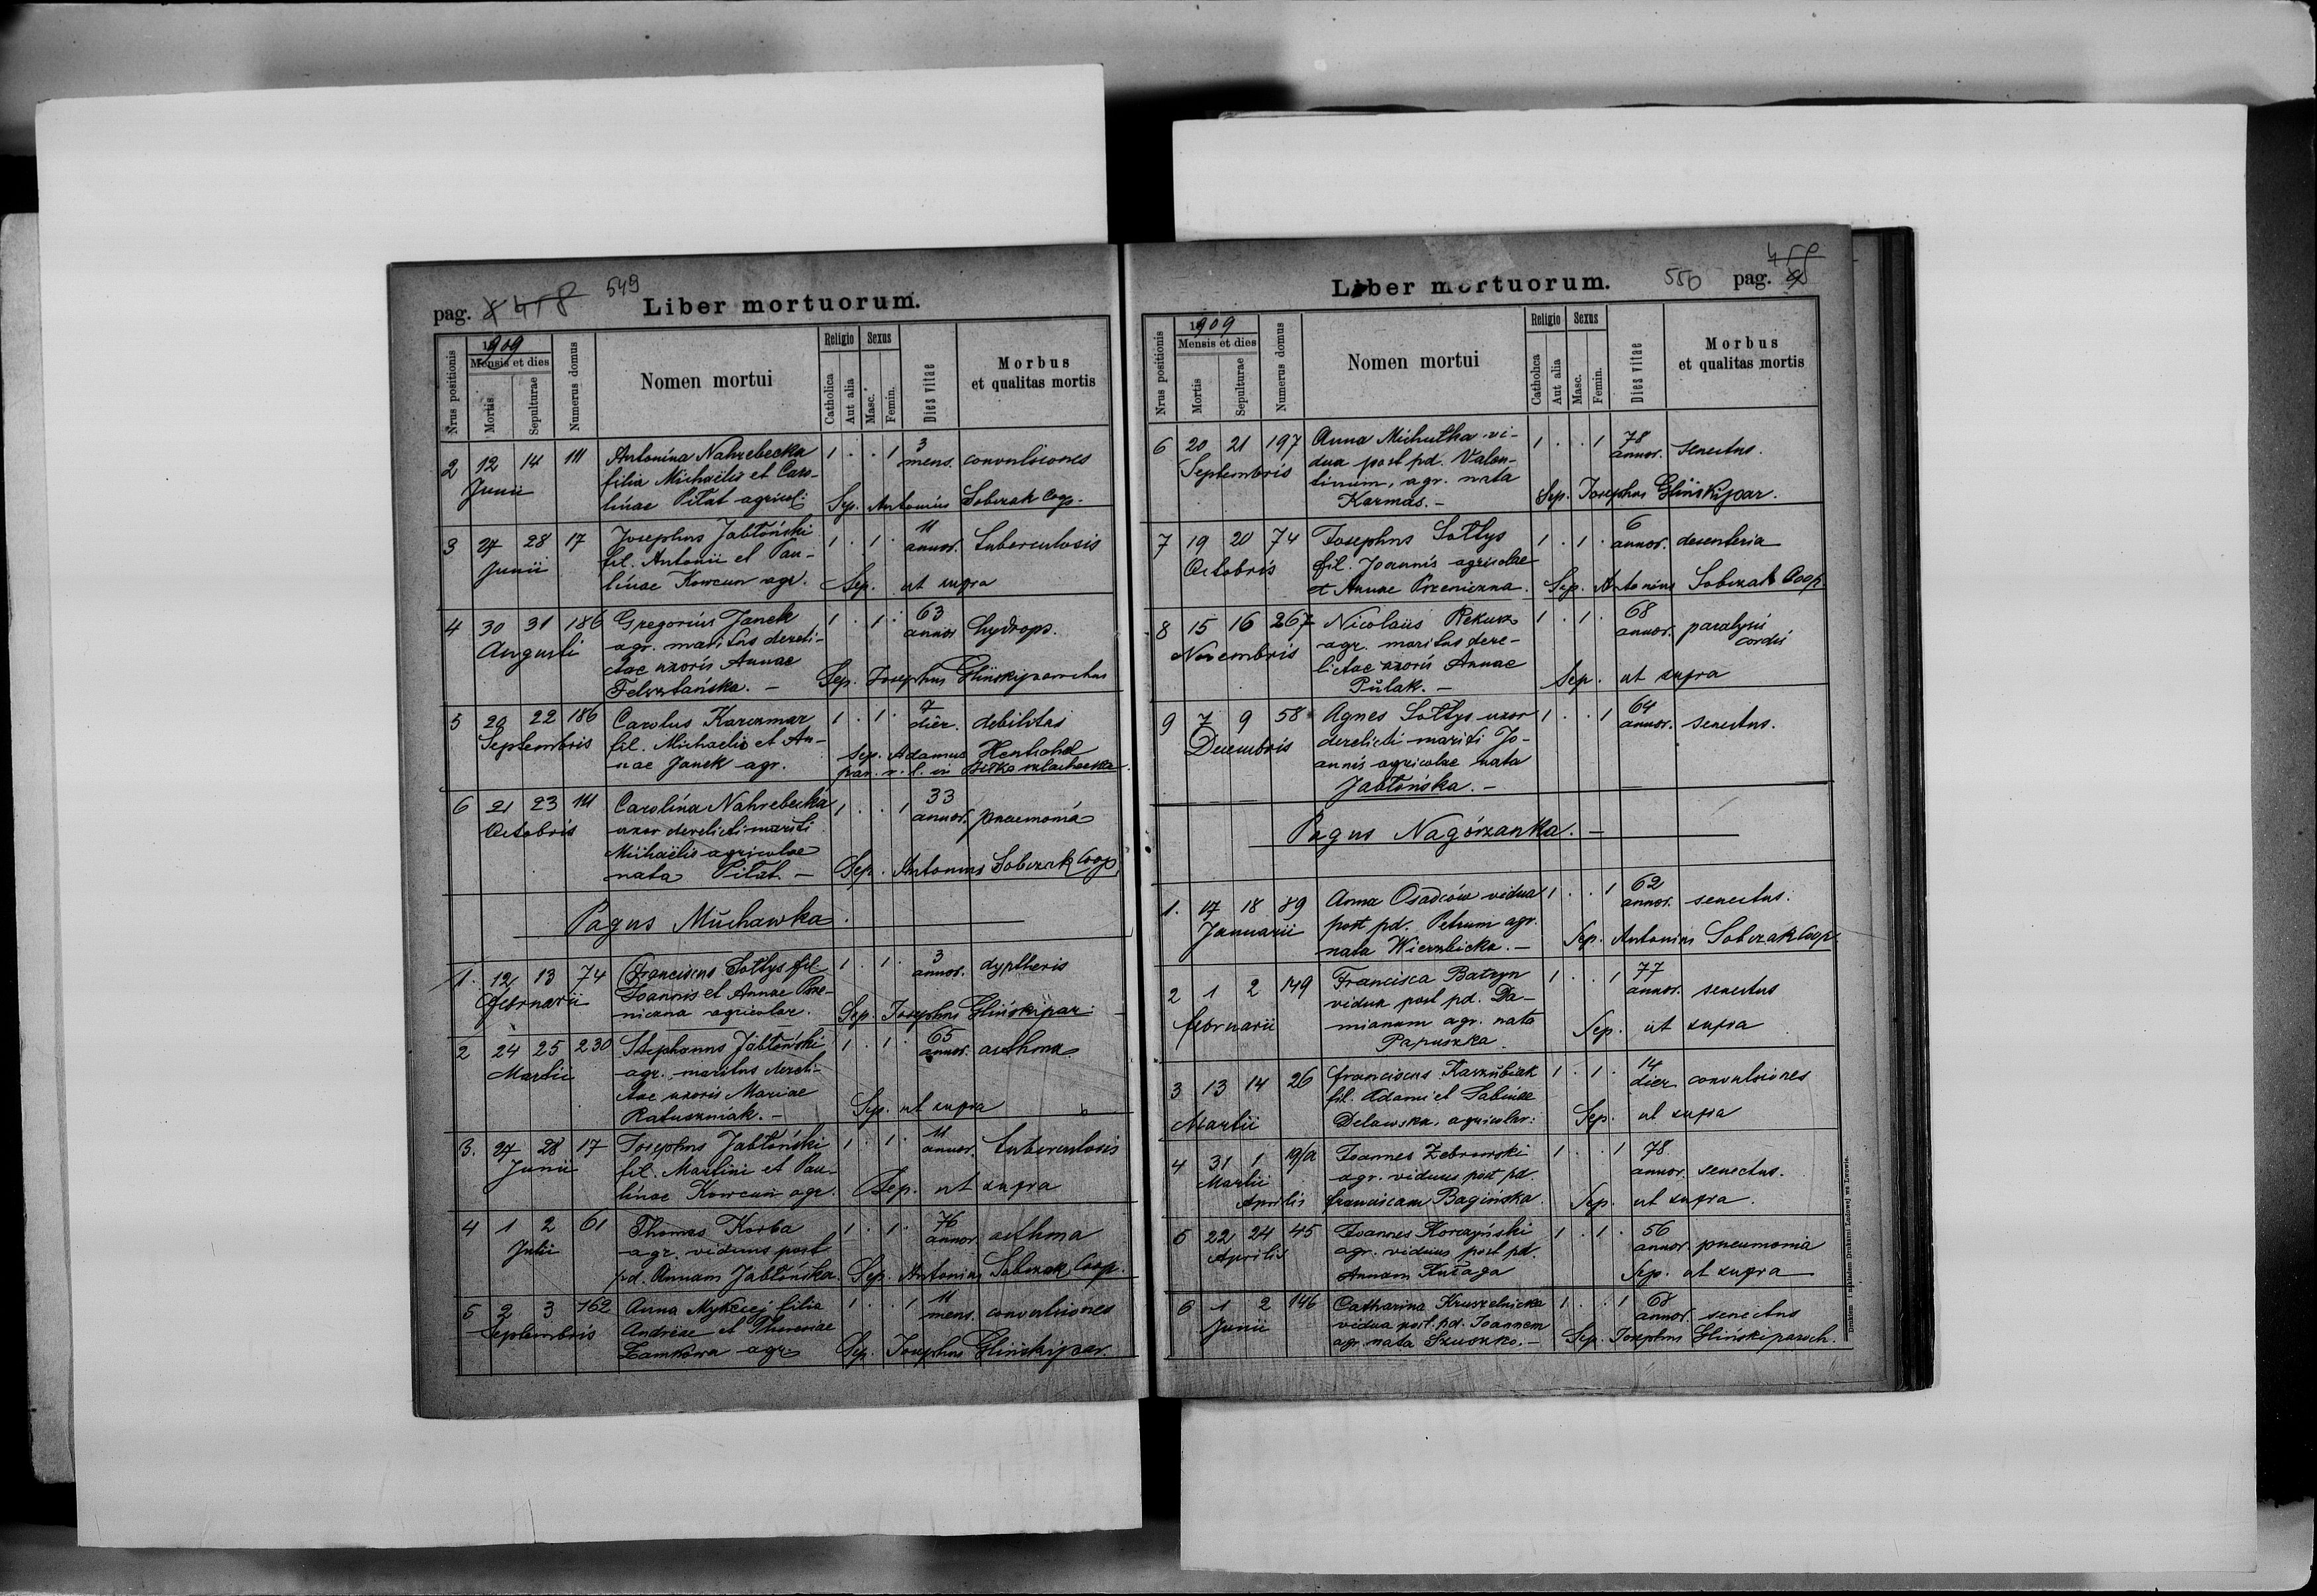 pag. 8 458 549 Liber mortuorum.
Nrus positionis
1909
Mensis et dies
Mortis
Sepulturae
Numerus domus
Nomen mortui
Religio
Catholica
Aut alia
Sexus
Masc.
Femin.
Dies vitae
Morbus
et qualitas mortis
2 12 14 111 Antonina Nahrebecka 1 . . 1 3
Junii filia Michaëlis et Caro- mens. convulsiones
linae Piłat agricol: Sep. Antonius Sobczak Coop.
3 27 28 17 Josephus Jabłoński 1 . 1 . 11
Junii fil. Antonii et Pau- annor. tuberculosis
linae Kowcun agr. Sep. ut supra
4 30 31 186 Gregorius Janek 1 . 1 . 63
Augusti agr. maritus dereli- annor hydrops.
ctae uxoris Annae
Felsztańska. – Sep. Josephus Gliński parochus
5 20 22 186 Carolus Karczmar 1 . 1 . 7
Septembris fil. Michaelis et An- dier. debilitas
nae Janek agr. Sep. Adamus
par. r. l. in
6 21 23 111 Carolina Nahrebecka 1 . . 1 33
Octobris uxor derelicti mariti annor. pneumonia
Michaëlis agricolae
nata Piłat. – Sep. Antonius Sobczak Coop.
Pagus Muchawka.
1. 12 13 74 Franciscus Sołtys fil. 1 . 1 . 3
februarii Joannis et Annae Psze- annor. dyptheris
niczna agricolar. Sep. Josephus Gliński par.
2 24 25 230 Stephanus Jabłoński 1 . 1 . 65
Martii agr. maritus dereli- annor. asthma
ctae uxoris Mariae
Ratuszniak. – Sep. ut supra
3. 27 28 17 Josephus Jabłoński 1 . 1 . 11
Junii fil. Martini et Pau- annor. tuberculosis
linae Kowcun agr. Sep. ut supra
4 1 2 61 Thomas Korba 1 . 1 . 76
Julii agr. viduus post annor. asthma
pd. Annam Jabłońska. Sep. Antonius Sobczak Coop.
5 2 3 162 Anna Mykciej filia 1 . . 1 11
Septembris Andreae et Theresiae mens. convulsiones
Zamkowa agr. Sep. Josephus Gliński par.
Liber mortuorum. 550 pag. 9 459
Nrus positionis
1909
Mensis et dies
Mortis
Sepulturae
Numerus domus
Nomen mortui
Religio
Catholica
Aut alia
Sexus
Masc.
Femin.
Dies vitae
Morbus
et qualitas mortis
6 20 21 197 Anna Michutka vi- 1 . . 1 78
Septembris dua post pd. Valen- annor. senectus.
tinum, agr. nata
Karmas. – Sep. Josephus Gliński par.
7 19 20 74 Josephus Sołtys 1 . 1 . 6
Octobris fil. Joannis agricolae annor. desenteria
et Annae Przeniczna. Sep. Antonius Sobczak Coop.
8 15 16 267 Nicolaus Rekusz 1 . 1 . 68
Novembris agr. maritus dere- annor. paralysis
lictae uxoris Annae cordis
Pułak. – Sep. ut supra
9 7 9 58 Agnes Sołtys uxor 1 . . 1 64
Decembris derelicti mariti Jo- annor. senectus.
annis agricolae nata
Jabłońska. –
Pagus Nagórzanka. –
1. 17 18 89 Anna Osadców vidua 1 . . 1 62
Januarii post pd. Petrum agr. annor. senectus.
nata Wierzbicka. – Sep. Antonius Sobczak Coop.
2 1 2 149 Francisca Batryn 1 . . 1 77
februarii vidua post pd. Da- annor. senectus
mianum agr. nata
Papuszka. Sep. ut supra
3 13 14 26 franciscus Kaszubiak 1 . 1 . 14
Martii fil. Adami et Sabinae dier convulsiones
Delawska, agricolar: Sep. ut supra
4 31 1 19/a Joannes Żebrowski 1 . . 1 78
Martii agr. viduus post pd. annor. senectus.
Aprilis franciscam Bagińska. Sep. ut supra.
5 22 24 45 Joannes Korczyński 1 . 1 . 56
Aprilis agr. viduus post pd. annor. pneumonia
Annam Kułaga Sep. ut supra
6 1 2 146 Catharina Kruszelnicka 1 . . 1 68
Junii vidua post. pd. Joannem annor. senectus
agr. nata Szuszko. – Sep. Josephus Gliński paroch.
Drukiem i nakładem Drukarni Ludowej we Lwowie.